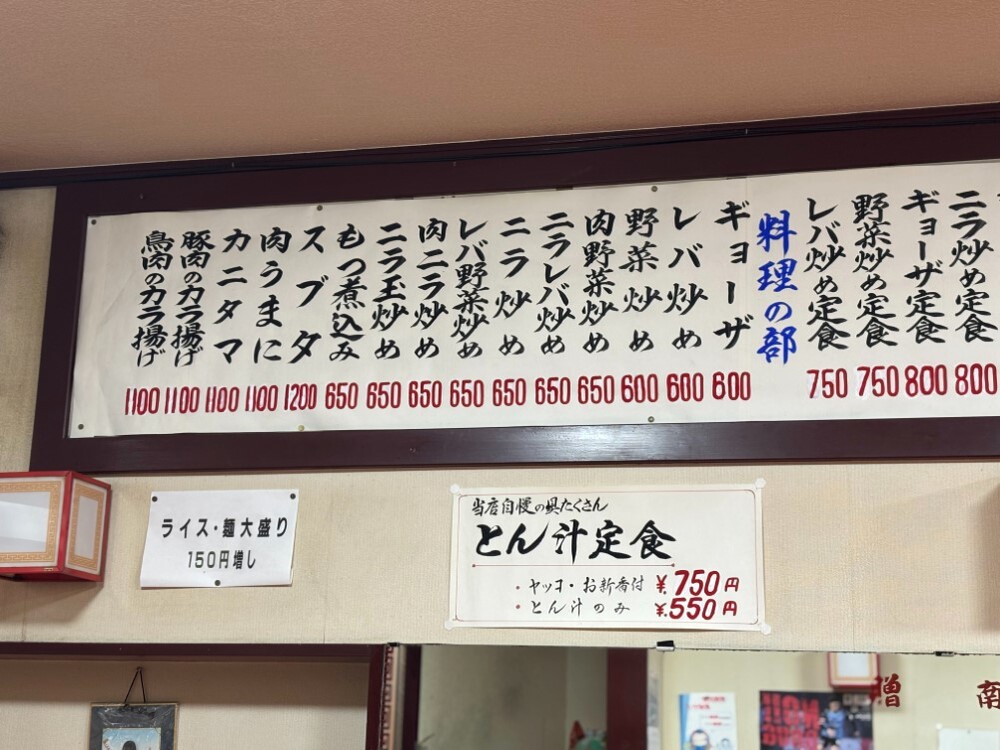 ニラ炒め定食 800
ギョーザ定食 800
野菜炒め定食 750
レバ炒め定食 750
料理の部
ギョーザ 600
レバ炒め 600
野菜炒め 600
肉野菜炒め 650
ニラレバ炒め 650
ニラ炒め 650
レバ野菜炒め 650
肉ニラ炒め 650
ニラ玉炒め 650
もつ煮込み 650
スブタ 1200
肉うまに 1100
カニタマ 1100
豚肉のカラ揚げ 1100
鳥肉のカラ揚げ 1100
ライス・麺大盛り
150円増し
当店自慢の具たくさん
とん汁定食
・ヤッコ・お新香付 ¥750円
・とん汁のみ ¥550円
贈
南